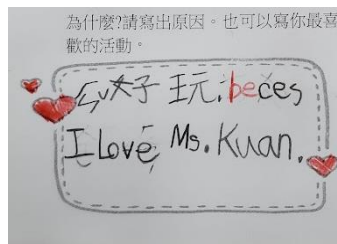 為什麼?請寫出原因。也可以寫你最喜
歡的活動。
好玩.beces
I Love Ms. Kuan.